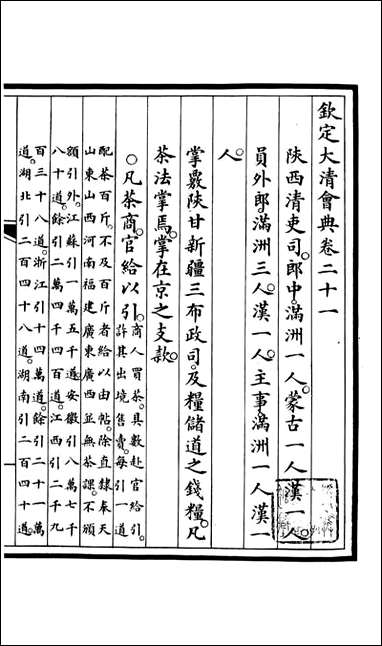 欽定大清會典卷二十一
陝西清吏司。郎中。滿洲一人。蒙古一人。漢一人。
員外郎。滿洲三人。漢一人。主事。滿洲一人。漢一
人。
掌覈陝甘新疆三布政司。及糧儲道之錢糧。凡
茶法掌焉。掌在京之支款。
○凡茶商。官給以引。商人買茶。具數赴官給引。
許其出境售賣。每引一道
配茶百斤。不及百斤者給以由帖。除直隸奉天
山東山西河南福建廣東廣西並無茶課。不頒
額引外。江蘇引一萬五千道。安徽引八萬七千
八十道。餘引二萬四千四百道。江西引二千九
百三十八道。浙江引十四萬道。餘引二十一萬
道。湖北引二百四十八道。湖南引二百四十道。